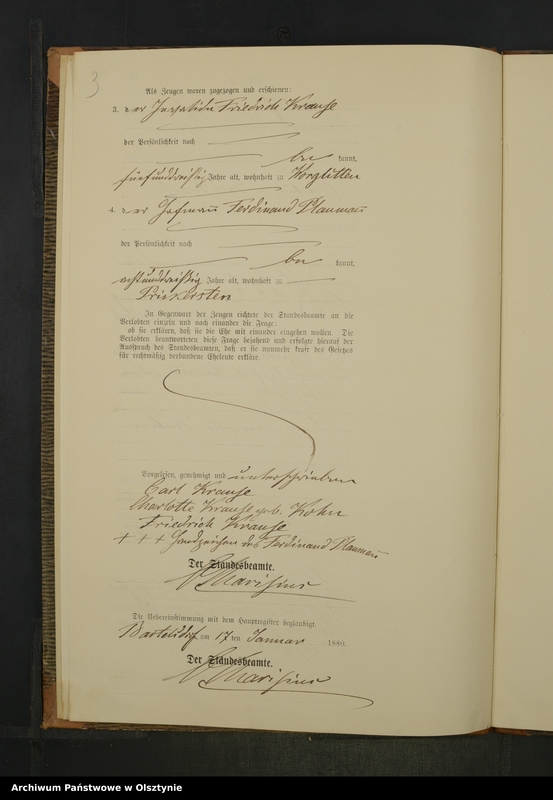 3
Als Zeugen waren zugezogen und erschienen:
3. der Friedrich Krause
der Persönlichkeit nach
be kannt,
fünfunddreißig Jahre alt, wohnhaft zu Korglitten
4. der Hofmann Ferdinand Plaumann
der Persönlichkeit nach
be kannt,
achtunddreißig Jahre alt, wohnhaft zu
In Gegenwart der Zeugen richtete der Standesbeamte an die
Verlobten einzeln und nach einander die Frage:
ob sie erklären, daß sie die Ehe mit einander eingehen wollen. Die
Verlobten beantworteten diese Frage bejahend und erfolgte hierauf der
Ausspruch des Standesbeamten, daß er sie nunmehr kraft des Gesetzes
für rechtmäßig verbundene Eheleute erkläre.
Vorgelesen, genehmigt und unterschrieben
Carl Krause
Charlotte Krause geb. Kohn
Friedrich Krause
+ + + Handzeichen des Ferdinand Plaumann
Der Standesbeamte.
Die Uebereinstimmung mit dem Hauptregister beglaubigt.
Bartelsdorf am 17 ten Januar 1880.
Der Standesbeamte.
Archiwum Państwowe w Olsztynie